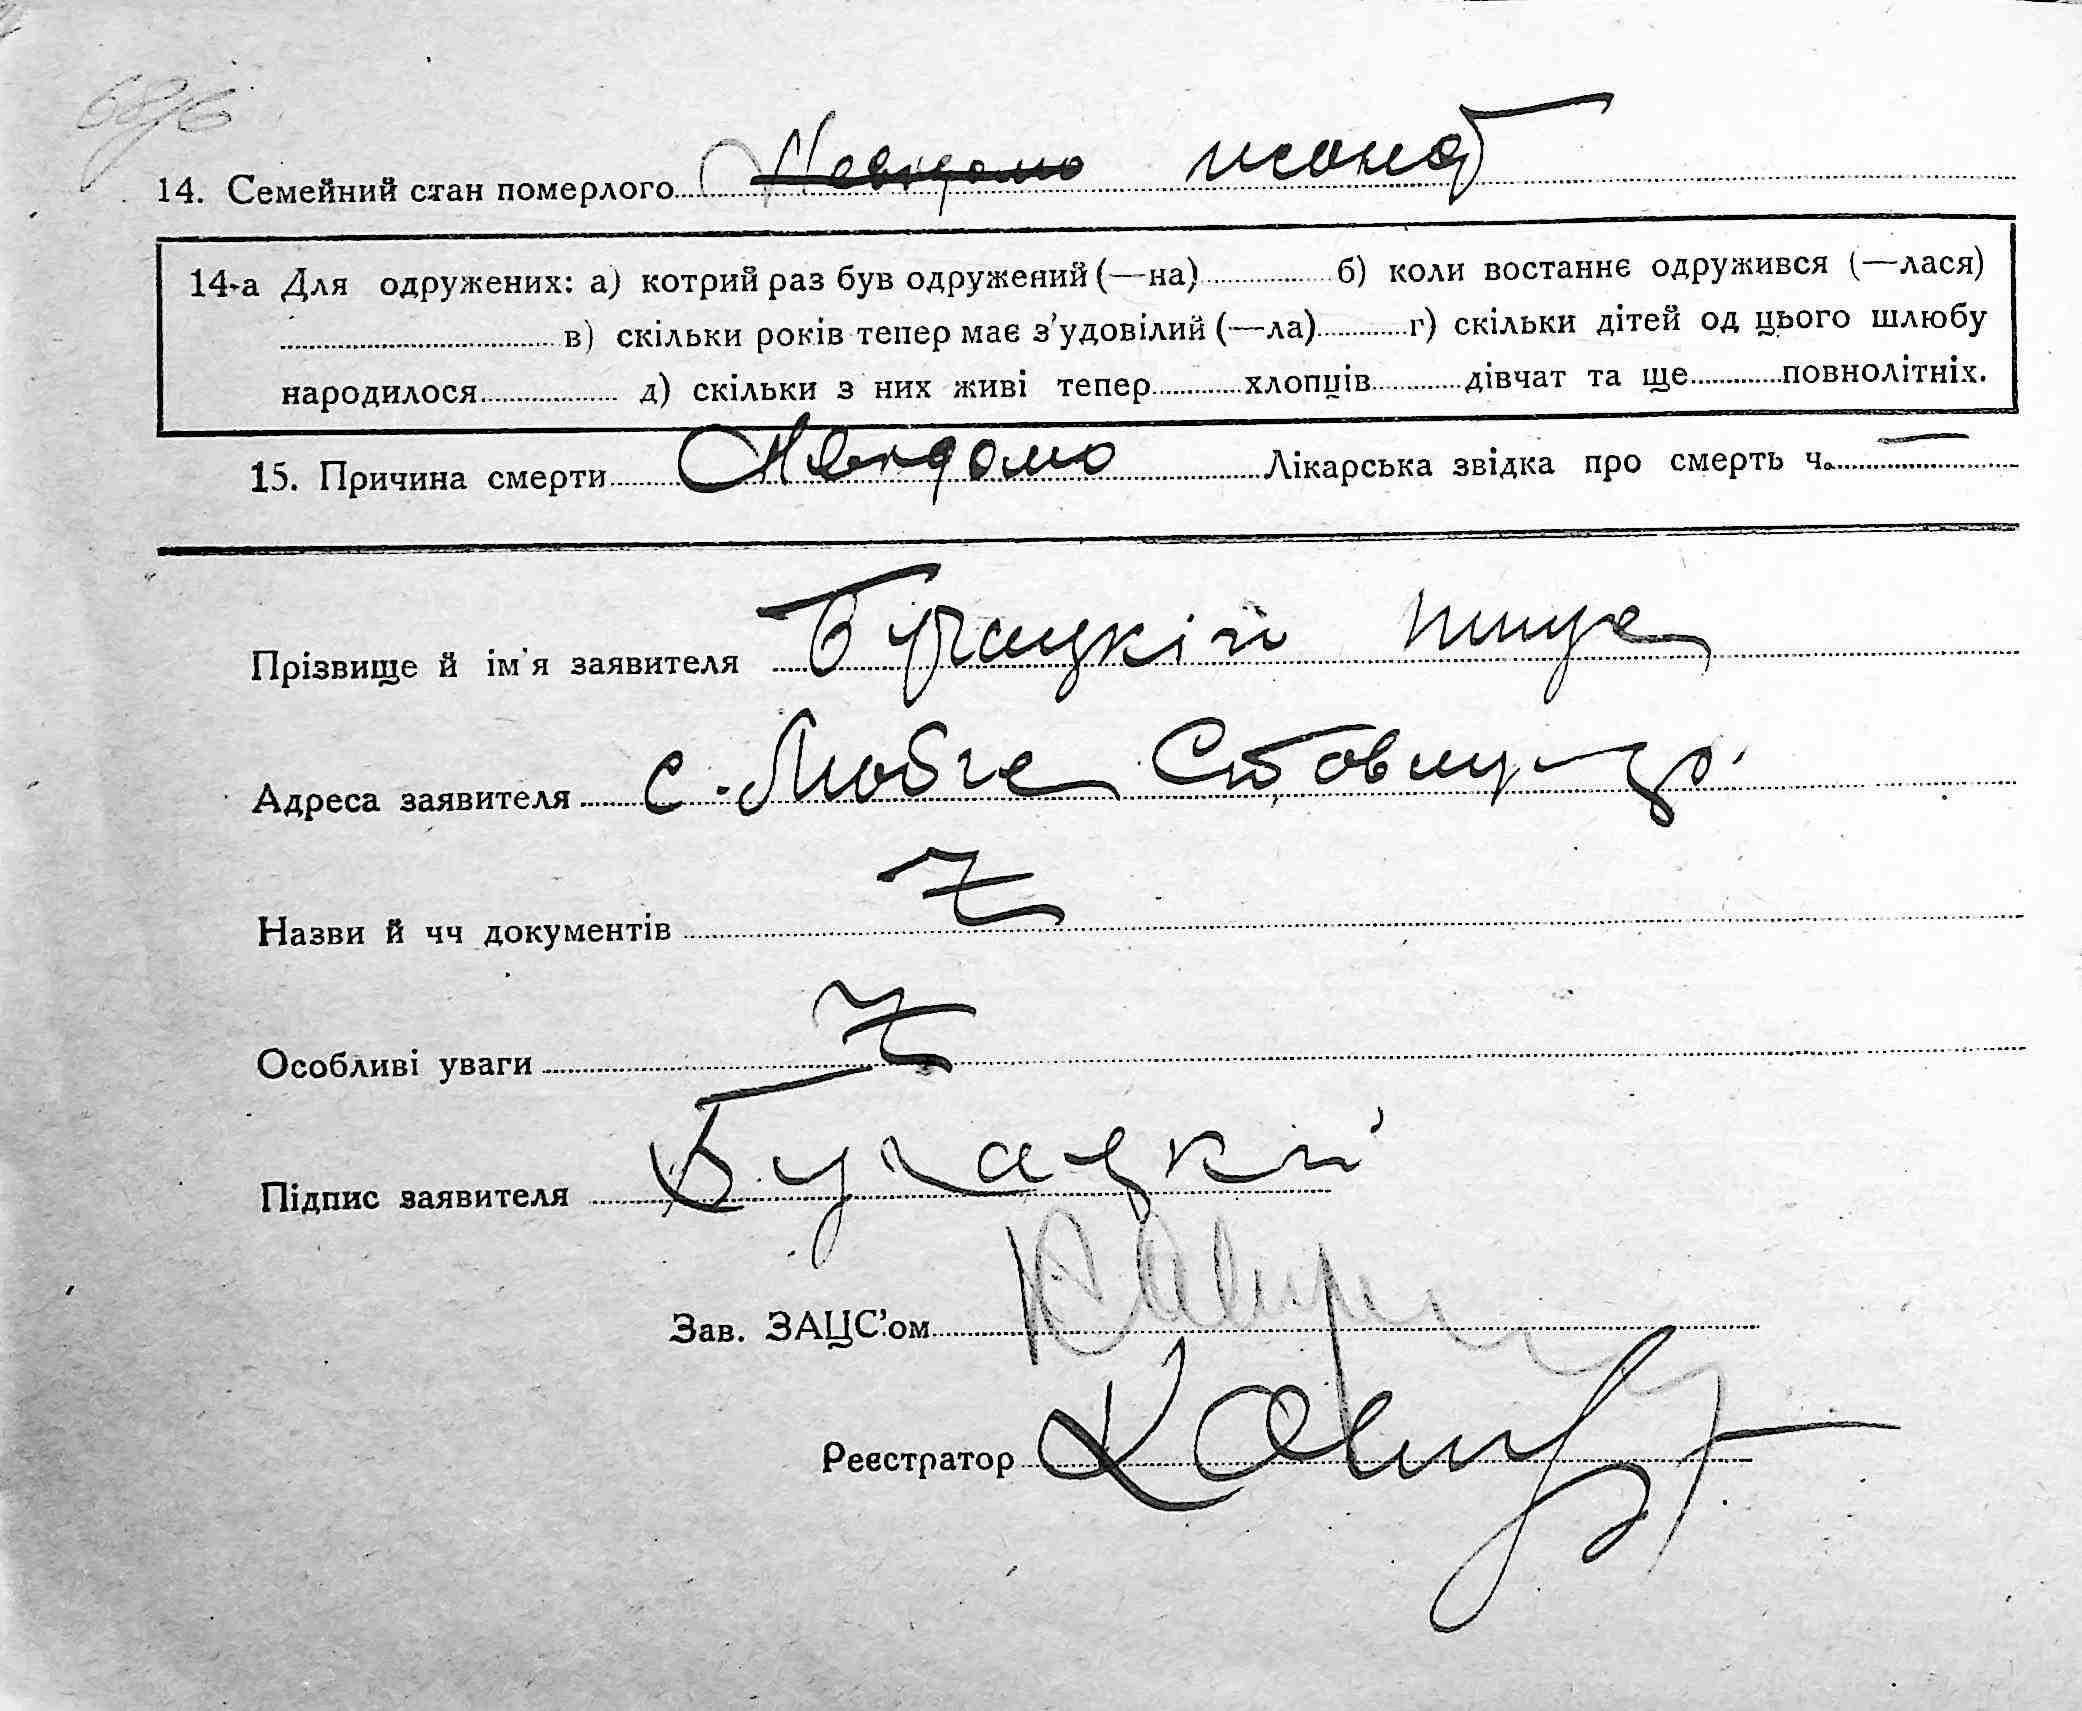 14. Семейний стан померлого Невідомо жонат
14-а Для одружених: а) котрий раз був одружений (—на) б) коли востаннє одружився (—лася)
в) скільки років тепер має з'удовілий (—ла) г) скільки дітей од цього шлюбу
народилося д) скільки з них живі тепер хлопців дівчат та ще повнолітніх.
15. Причина смерти Невідомо Лікарська звідка про смерть ч. —
Прізвище й ім'я заявителя Бугацкій
Адреса заявителя с. Любче
Назви й чч документів
Особливі уваги
Підпис заявителя Бугацкий
Зав. ЗАЦС'ом
Реєстратор